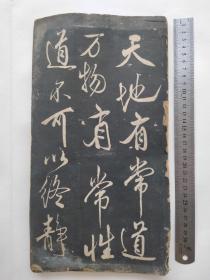 天地有常道
万物有常性
道不可以终静